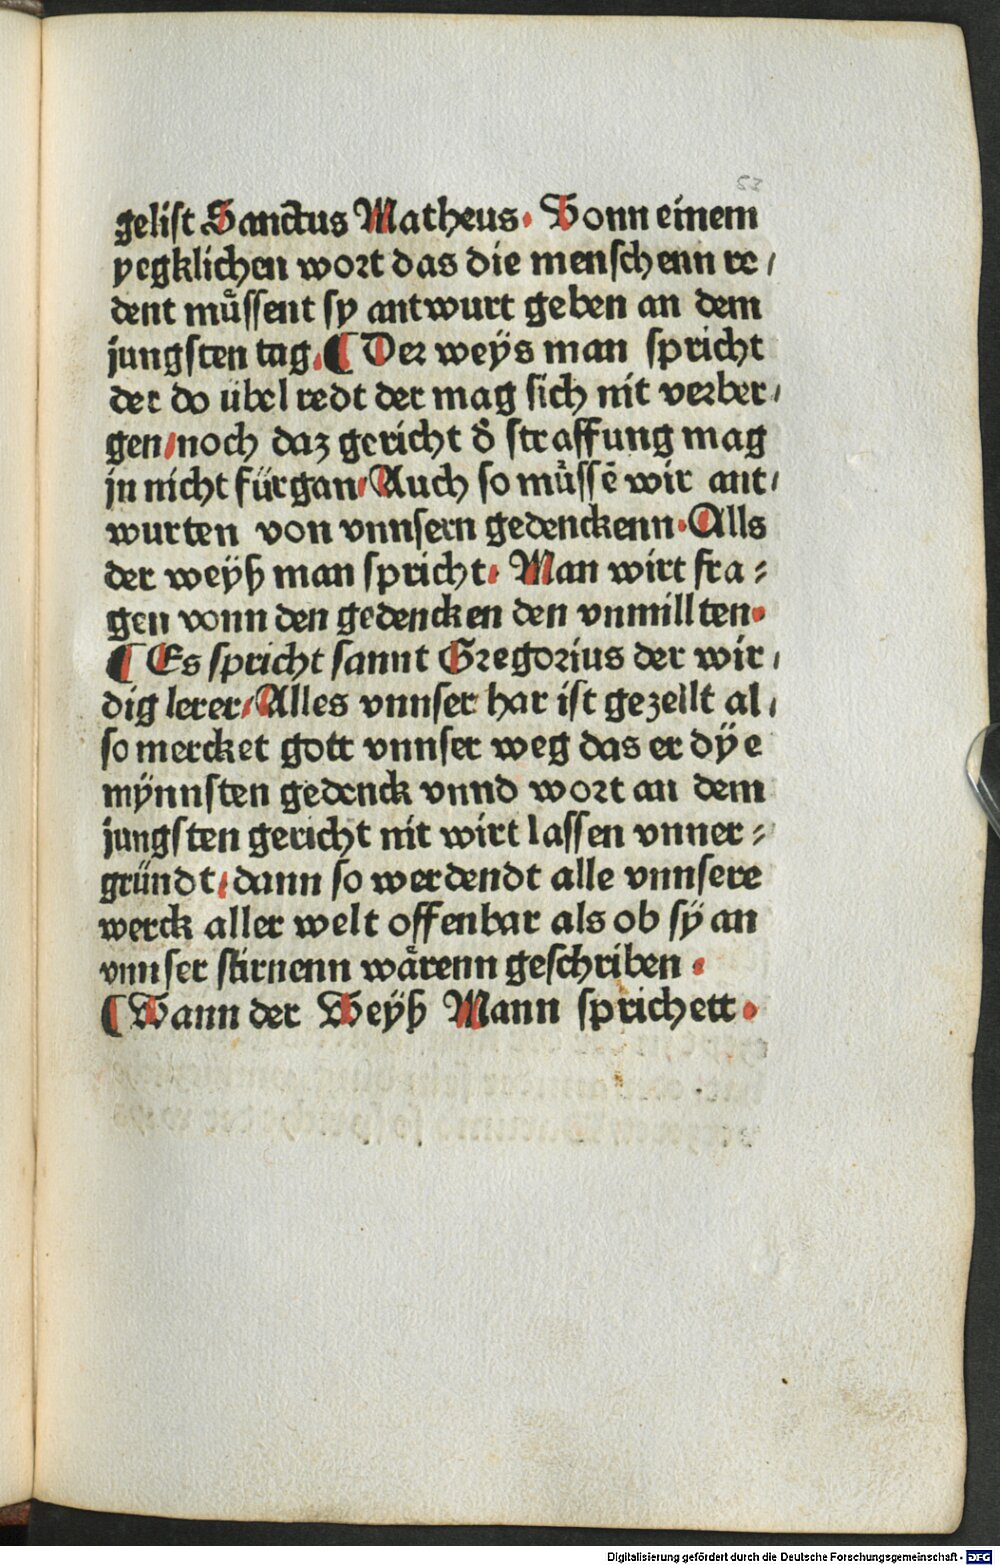 53
geliſt Sanctus Matheus. Vonn einem
yegklichen wort das die menſchenn re/
dent muͤſſent ſy antwurt geben an dem
jungſten tag. ¶ Der weÿs man ſpricht
der do übel redt der mag ſich nit verber/
gen/noch daʒ gericht d̕ ſtraffung mag
jn nicht fürgan/Auch ſo muͤſſē wir ant/
wurten von vnnſern gedenckenn. Alls
der weÿß man ſpricht. Man wirt fra⸗
gen vonn den gedencken den vnmillten.
¶ Es ſpricht ſannt Gregorius der wir/
dig lerer/Alles vnnſer har iſt gezellt al/
ſo mercket gott vnnſer weg das er dÿe
mÿnnſten gedenck vnnd wort an dem
jungſten gericht nit wirt laſſen vnner⸗
gründt/dann ſo werdendt alle vnnſere
werck aller welt offenbar als ob ſÿ an
vnnſer ſtirnenn waͤrenn geſchriben.
¶ Wann der Weÿß Mann ſprichett.
Digitalisierung gefördert durch die Deutsche Forschungsgemeinschaft - DFG